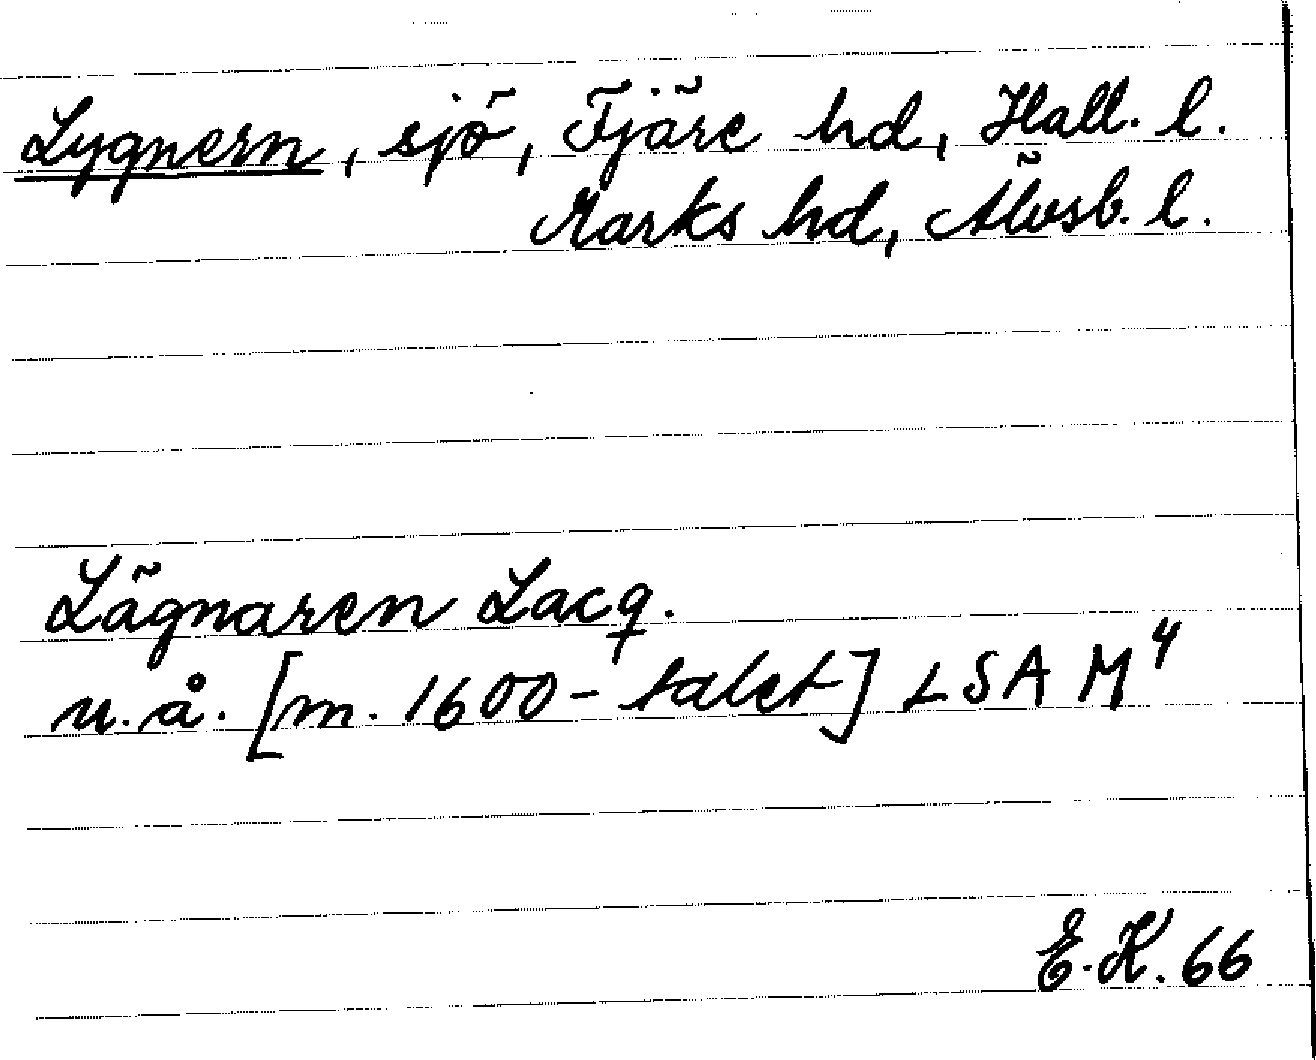 Lygnern, sjö, Fjäre hd, Hall. l.
Marks hd, Älvsb. l.
Lägnaren Lacq.
u.å. [m. 1600-talet] LSA M⁴
E.H. 66